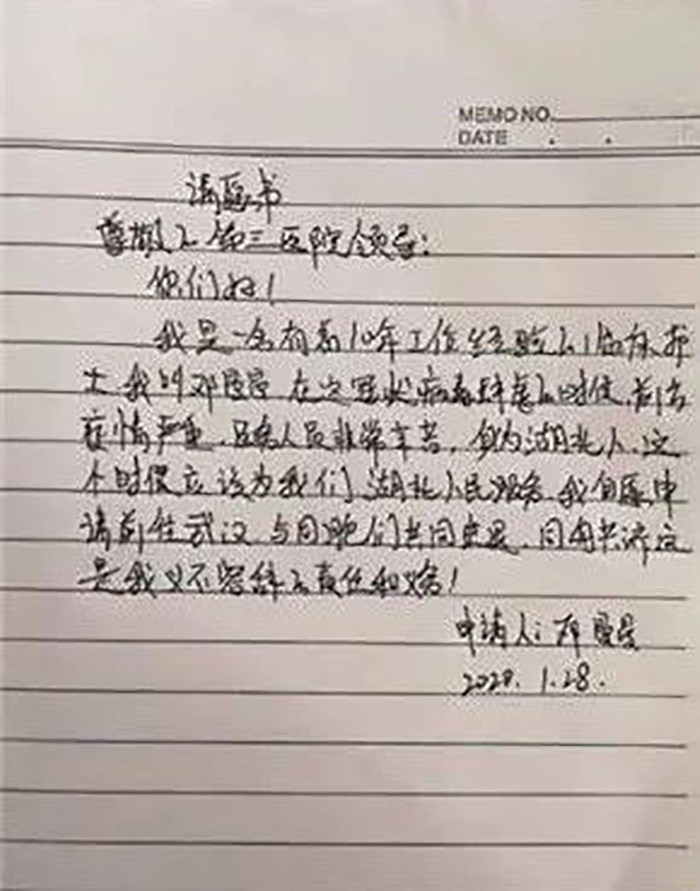 MEMO NO.
DATE . .
请愿书
尊敬的第三医院领导:
你们好!
我是一名有着10年工作经验的临床护
士我叫邓曼曼 在这冠状病毒肆虐的时候,前方
疫情严重,医务人员非常辛苦,身为湖北人,这
个时候应该为我们湖北人民服务,我自愿申
请前往武汉 与同胞们共同患难,同舟共济这
是我义不容辞的责任和义务!
申请人:邓曼曼
2020.1.28.